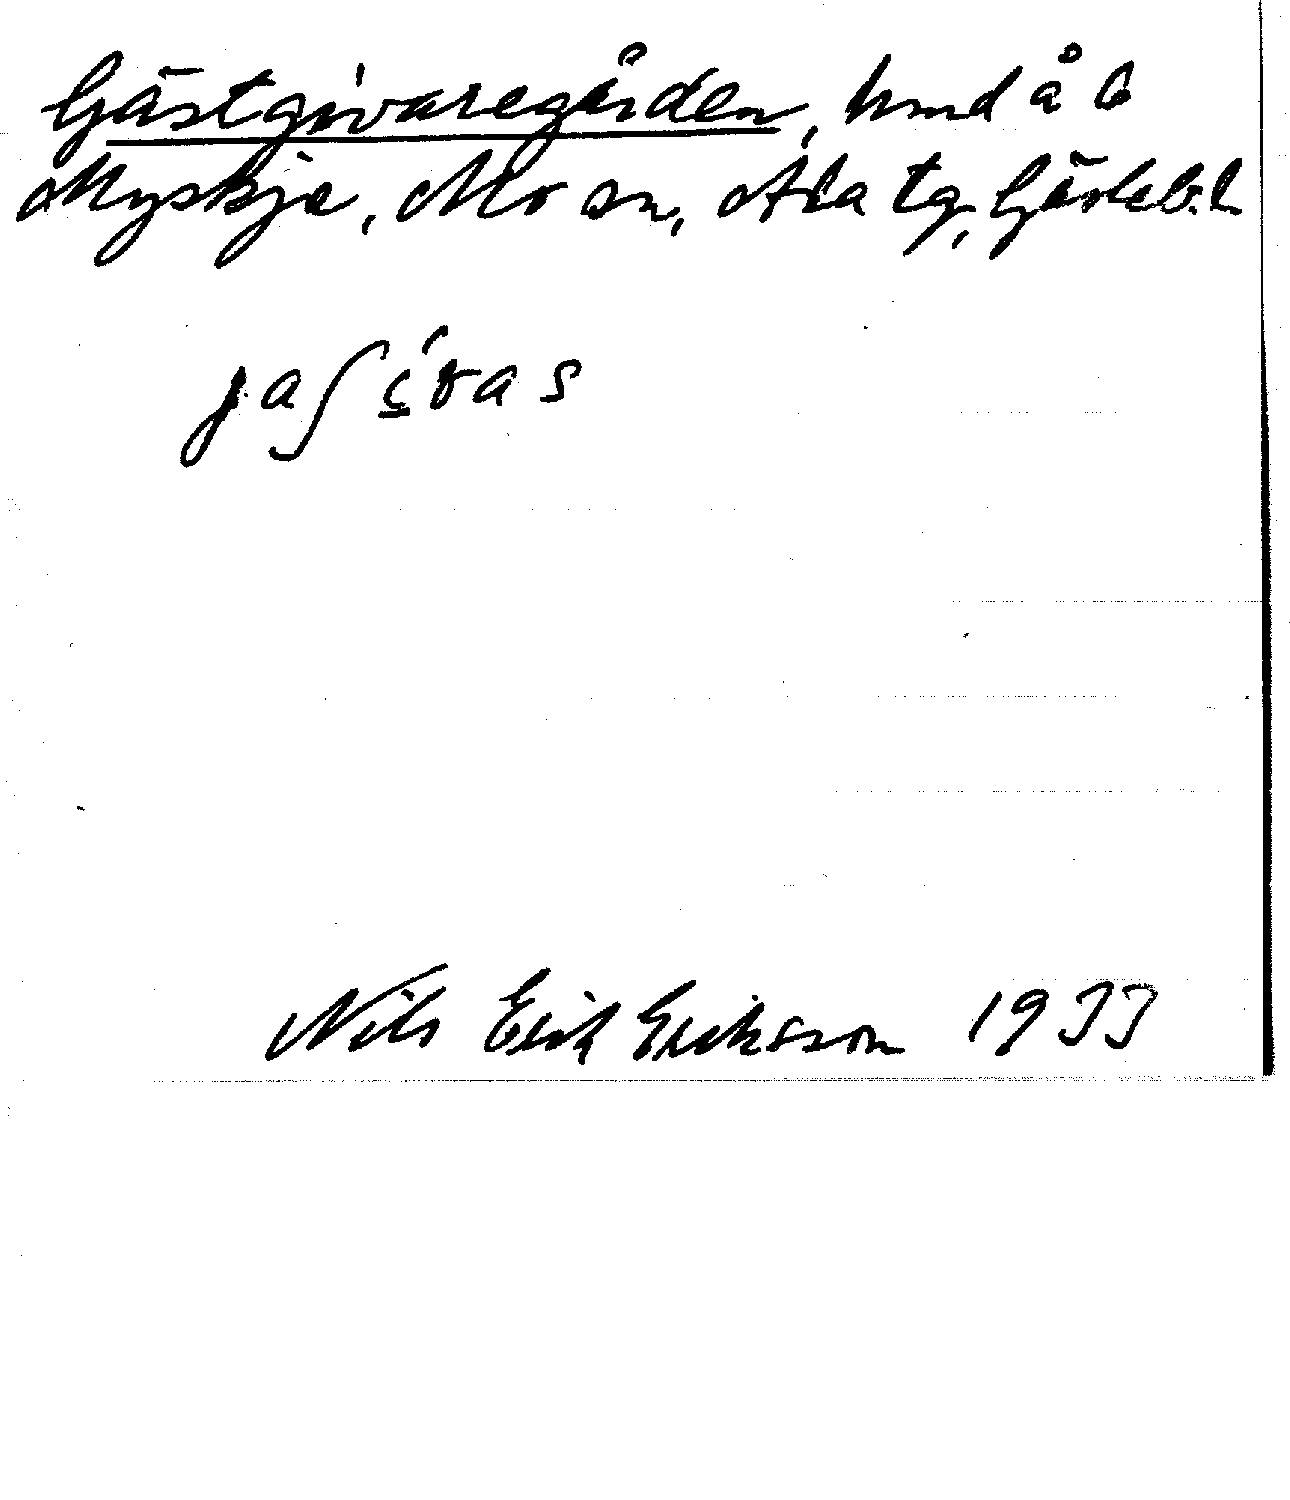 Gästgivaregården, hmd å b
Myskje, Mo sn, Ala tg, Gävleb. l.
jaʃi̱vas
Nils Erik Eriksson 1933